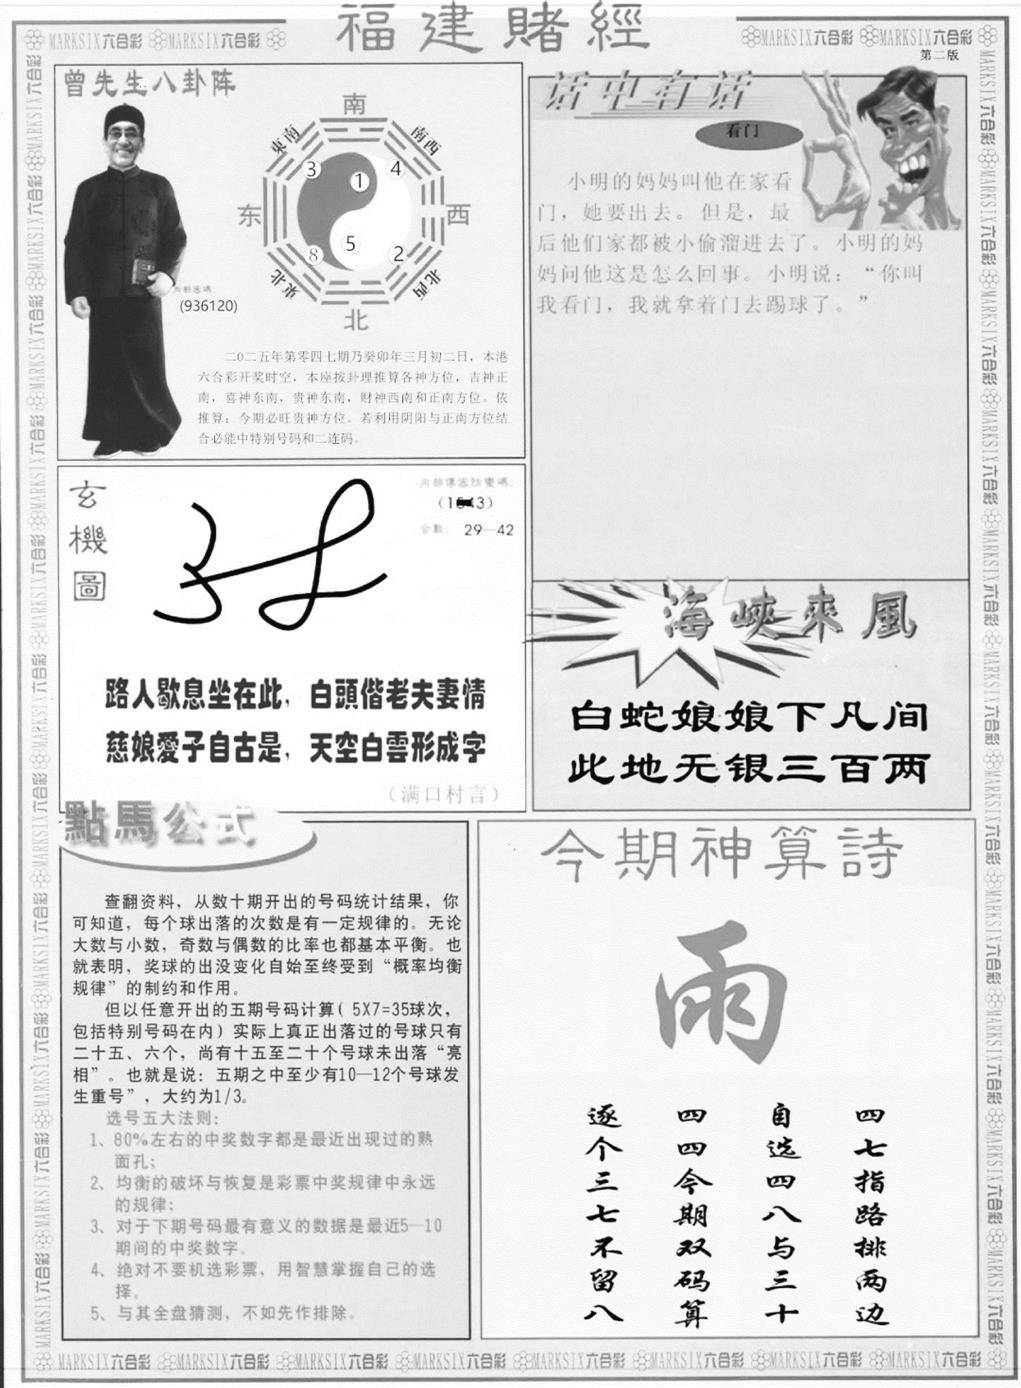 福建賭經
MARKSIX六合彩 MARKSIX六合彩
MARKSIX六合彩 MARKSIX六合彩
第二版
曾先生八卦阵
南
東南
南西
3
1
4
东
西
8
5
2
東北
北西
北
(936120)
二0二五年第零四七期乃癸卯年三月初二日，本港
六合彩开奖时空，本座按卦理推算各神方位，吉神正
南，喜神东南，贵神东南，财神西南和正南方位。依
推算：今期必旺贵神方位。若利用阴阳与正南方位结
合必能中特别号码和二连码。
话中有话
看门
小明的妈妈叫他在家看
门，她要出去。但是，最
后他们家都被小偷溜进去了。小明的妈
妈问他这是怎么回事。小明说：“你叫
我看门，我就拿着门去踢球了。”
玄
機
圖
合數： 29—42
路人歇息坐在此，白頭偕老夫妻情
慈娘愛子自古是，天空白雲形成字
（满口村言）
海峽來風
白蛇娘娘下凡间
此地无银三百两
點馬公式
查翻资料，从数十期开出的号码统计结果，你
可知道，每个球出落的次数是有一定规律的。无论
大数与小数，奇数与偶数的比率也都基本平衡。也
就表明，奖球的出没变化自始至终受到“概率均衡
规律”的制约和作用。
但以任意开出的五期号码计算( 5X7=35球次，
包括特别号码在内）实际上真正出落过的号球只有
二十五、六个，尚有十五至二十个号球未出落“亮
相”。也就是说：五期之中至少有10—12个号球发
生重号”，大约为1/3。
选号五大法则：
1、80%左右的中奖数字都是最近出现过的熟
面孔；
2、均衡的破坏与恢复是彩票中奖规律中永远
的规律；
3、对于下期号码最有意义的数据是最近5—10
期间的中奖数字。
4、绝对不要机选彩票，用智慧掌握自己的选
择。
5、与其全盘猜测，不如先作排除。
今期神算詩
雨
四七指路排两边
自选四八与三十
四四今期双码算
逐个三七不留八
MARKSIX六合彩 MARKSIX六合彩 MARKSIX六合彩 MARKSIX六合彩 MARKSIX六合彩 MARKSIX六合彩 MARKSIX六合彩 MARKSIX六合彩